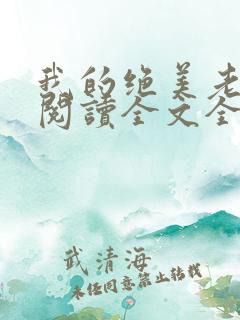 我的绝美老
閱讀全文全
武清海
未经同意禁止转载